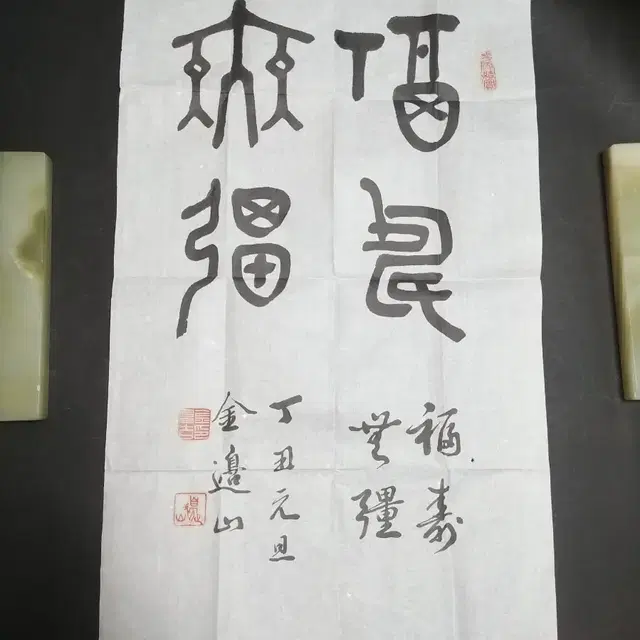 福壽
無疆
福壽
無疆
丁丑元旦
金邊山